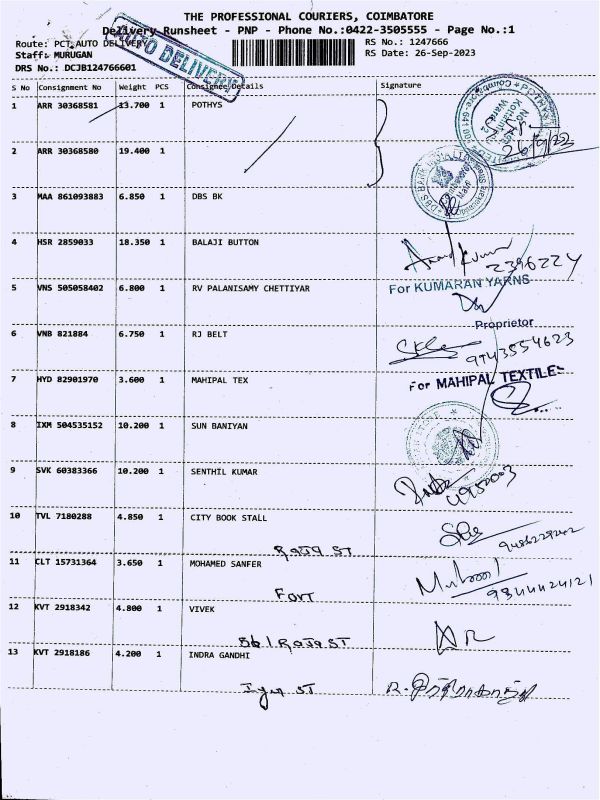 THE PROFESSIONAL COURIERS, COIMBATORE
Delivery Runsheet - PNP - Phone No.:0422-3505555 - Page No.:1
Route: PCT AUTO DELIVERY RS No.: 1247666
Staff: MURUGAN RS Date: 26-Sep-2023
DRS No.: DCJB124766601
AUTO DELIVERY
S No Consignment No Weight PCS Consignee Details Signature
1 ARR 30368581 13.700 1 POTHYS
26/9/23
2 ARR 30368580 19.400 1
3 MAA 861093883 6.850 1 DBS BK
4 HSR 2859033 18.350 1 BALAJI BUTTON
2396224
5 VNS 505058402 6.800 1 RV PALANISAMY CHETTIYAR For KUMARAN YARNS
Proprietor
6 VNB 821884 6.750 1 RJ BELT
9943554623
7 HYD 82901970 3.600 1 MAHIPAL TEX For MAHIPAL TEXTILES
8 IXM 504535152 10.200 1 SUN BANIYAN
9 SVK 60383366 10.200 1 SENTHIL KUMAR
10 TVL 7180288 4.850 1 CITY BOOK STALL
Raja ST
11 CLT 15731364 3.650 1 MOHAMED SANFER
Fort 9344424121
12 KVT 2918342 4.800 1 VIVEK
561 Raja ST
13 KVT 2918186 4.200 1 INDRA GANDHI
Iyer ST